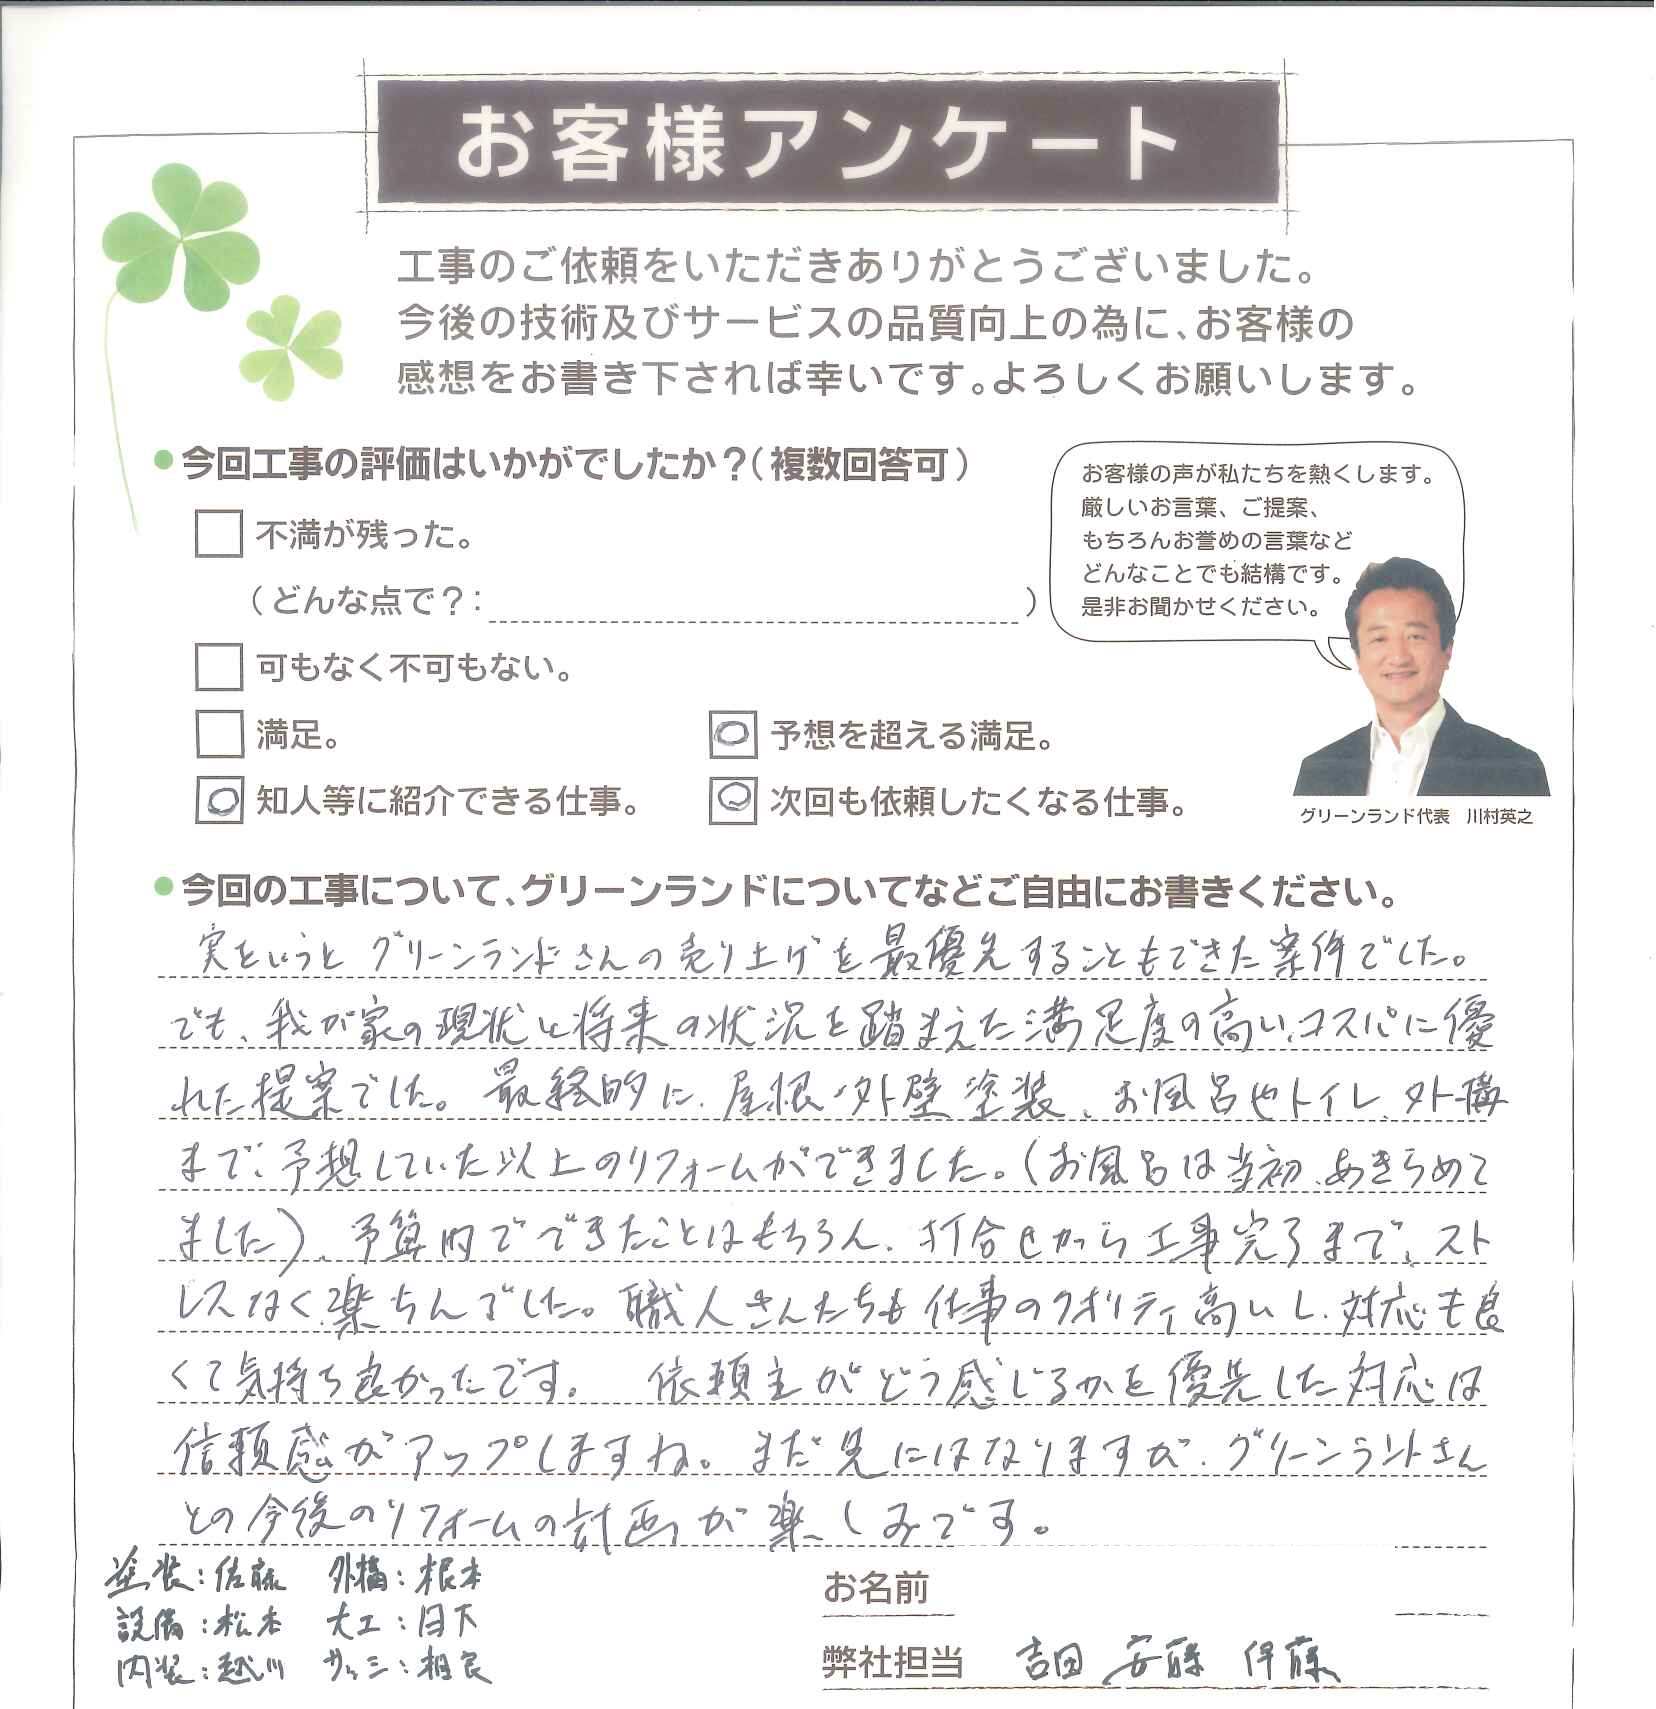 お客様アンケート
工事のご依頼をいただきありがとうございました。
今後の技術及びサービスの品質向上の為に、お客様の
感想をお書き下されば幸いです。よろしくお願いします。
今回工事の評価はいかがでしたか?(複数回答可)
不満が残った。
(どんな点で?: )
可もなく不可もない。
満足。
予想を超える満足。
知人等に紹介できる仕事。
次回も依頼したくなる仕事。
お客様の声が私たちを熱くします。
厳しいお言葉、ご提案、
もちろんお誉めの言葉など
どんなことでも結構です。
是非お聞かせください。
グリーンランド代表 川村英之
今回の工事について、グリーンランドについてなどご自由にお書きください。
実をいうと グリーンランドさんの売り上げを最優先することもできた案件でした。
でも、我が家の現状と将来の状況を踏まえた満足度の高い、コスパに優
れた提案でした。最終的に、屋根・外壁塗装、お風呂やトイレ、外構
まで、予想していた以上のリフォームができました。(お風呂は当初、あきらめて
ました)、予算内でできたことはもちろん、打合せから工事完了まで、スト
レスなく、楽ちんでした。職人さんたちも仕事のクオリティ高いし、対応も良
くて気持ち良かったです。 依頼主がどう感じるかを優先した対応は
信頼感がアップしますね。まだ先にはなりますが、グリーンランドさん
との今後のリフォームの計画が楽しみです。
塗装:佐藤 外構:根本
設備:松本 大工:日下
内装:越川 サッシ:相良
お名前
弊社担当 吉田 安藤 伊藤